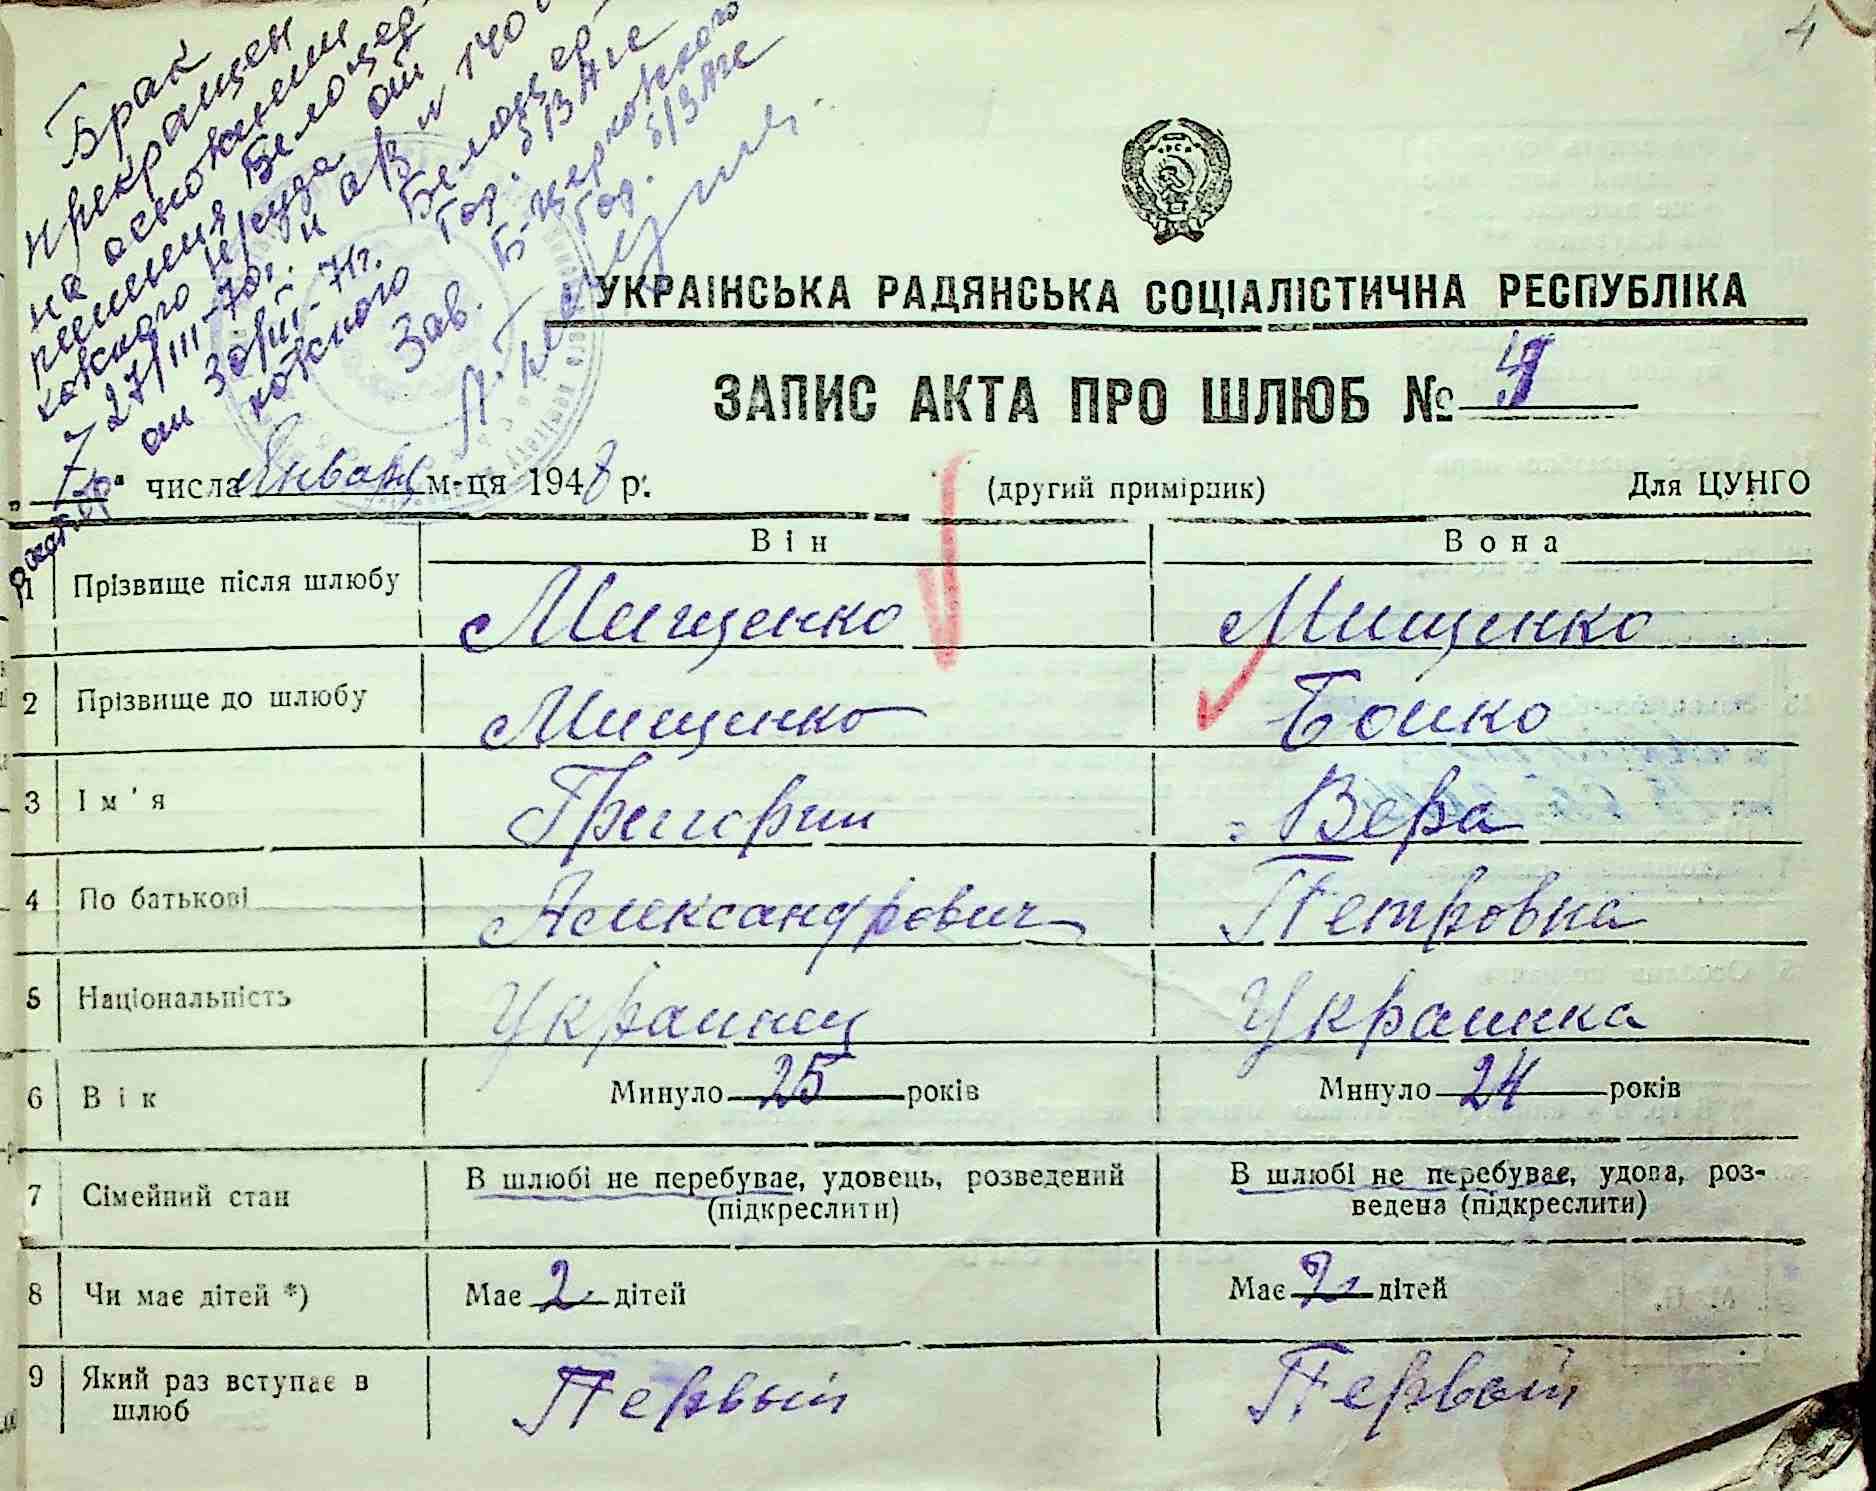 Брак
прекращен
на основании
решения Белоцер-
ковского н/суда от
27/III-70г. и а/з № 140
от 30/III-71г. Белоцер-
ковского Гор. б/ЗАГС
Зав. Б-церковского
Гор. б/ЗАГС
4
УКРАІНСЬКА РАДЯНСЬКА СОЦІАЛІСТИЧНА РЕСПУБЛІКА
ЗАПИС АКТА ПРО ШЛЮБ №
„7“ числа Января м-ця 1948 р. (другий примірник) Для ЦУНГО
Він Вона
1 Прізвище після шлюбу Мищенко Мищенко
2 Прізвище до шлюбу Мищенко Бойко
3 Ім'я Григории Вера
4 По батькові Александрович Петровна
5 Національність Украинец Украинка
6 Вік Минуло 25 років Минуло 24 років
7 Сімейний стан В шлюбі не перебуває, удовець, розведений В шлюбі не перебуває, удова, роз-
(підкреслити) ведена (підкреслити)
8 Чи має дітей *) Має 2 дітей Має 2 дітей
9 Який раз вступає в Первый Первый
шлюб